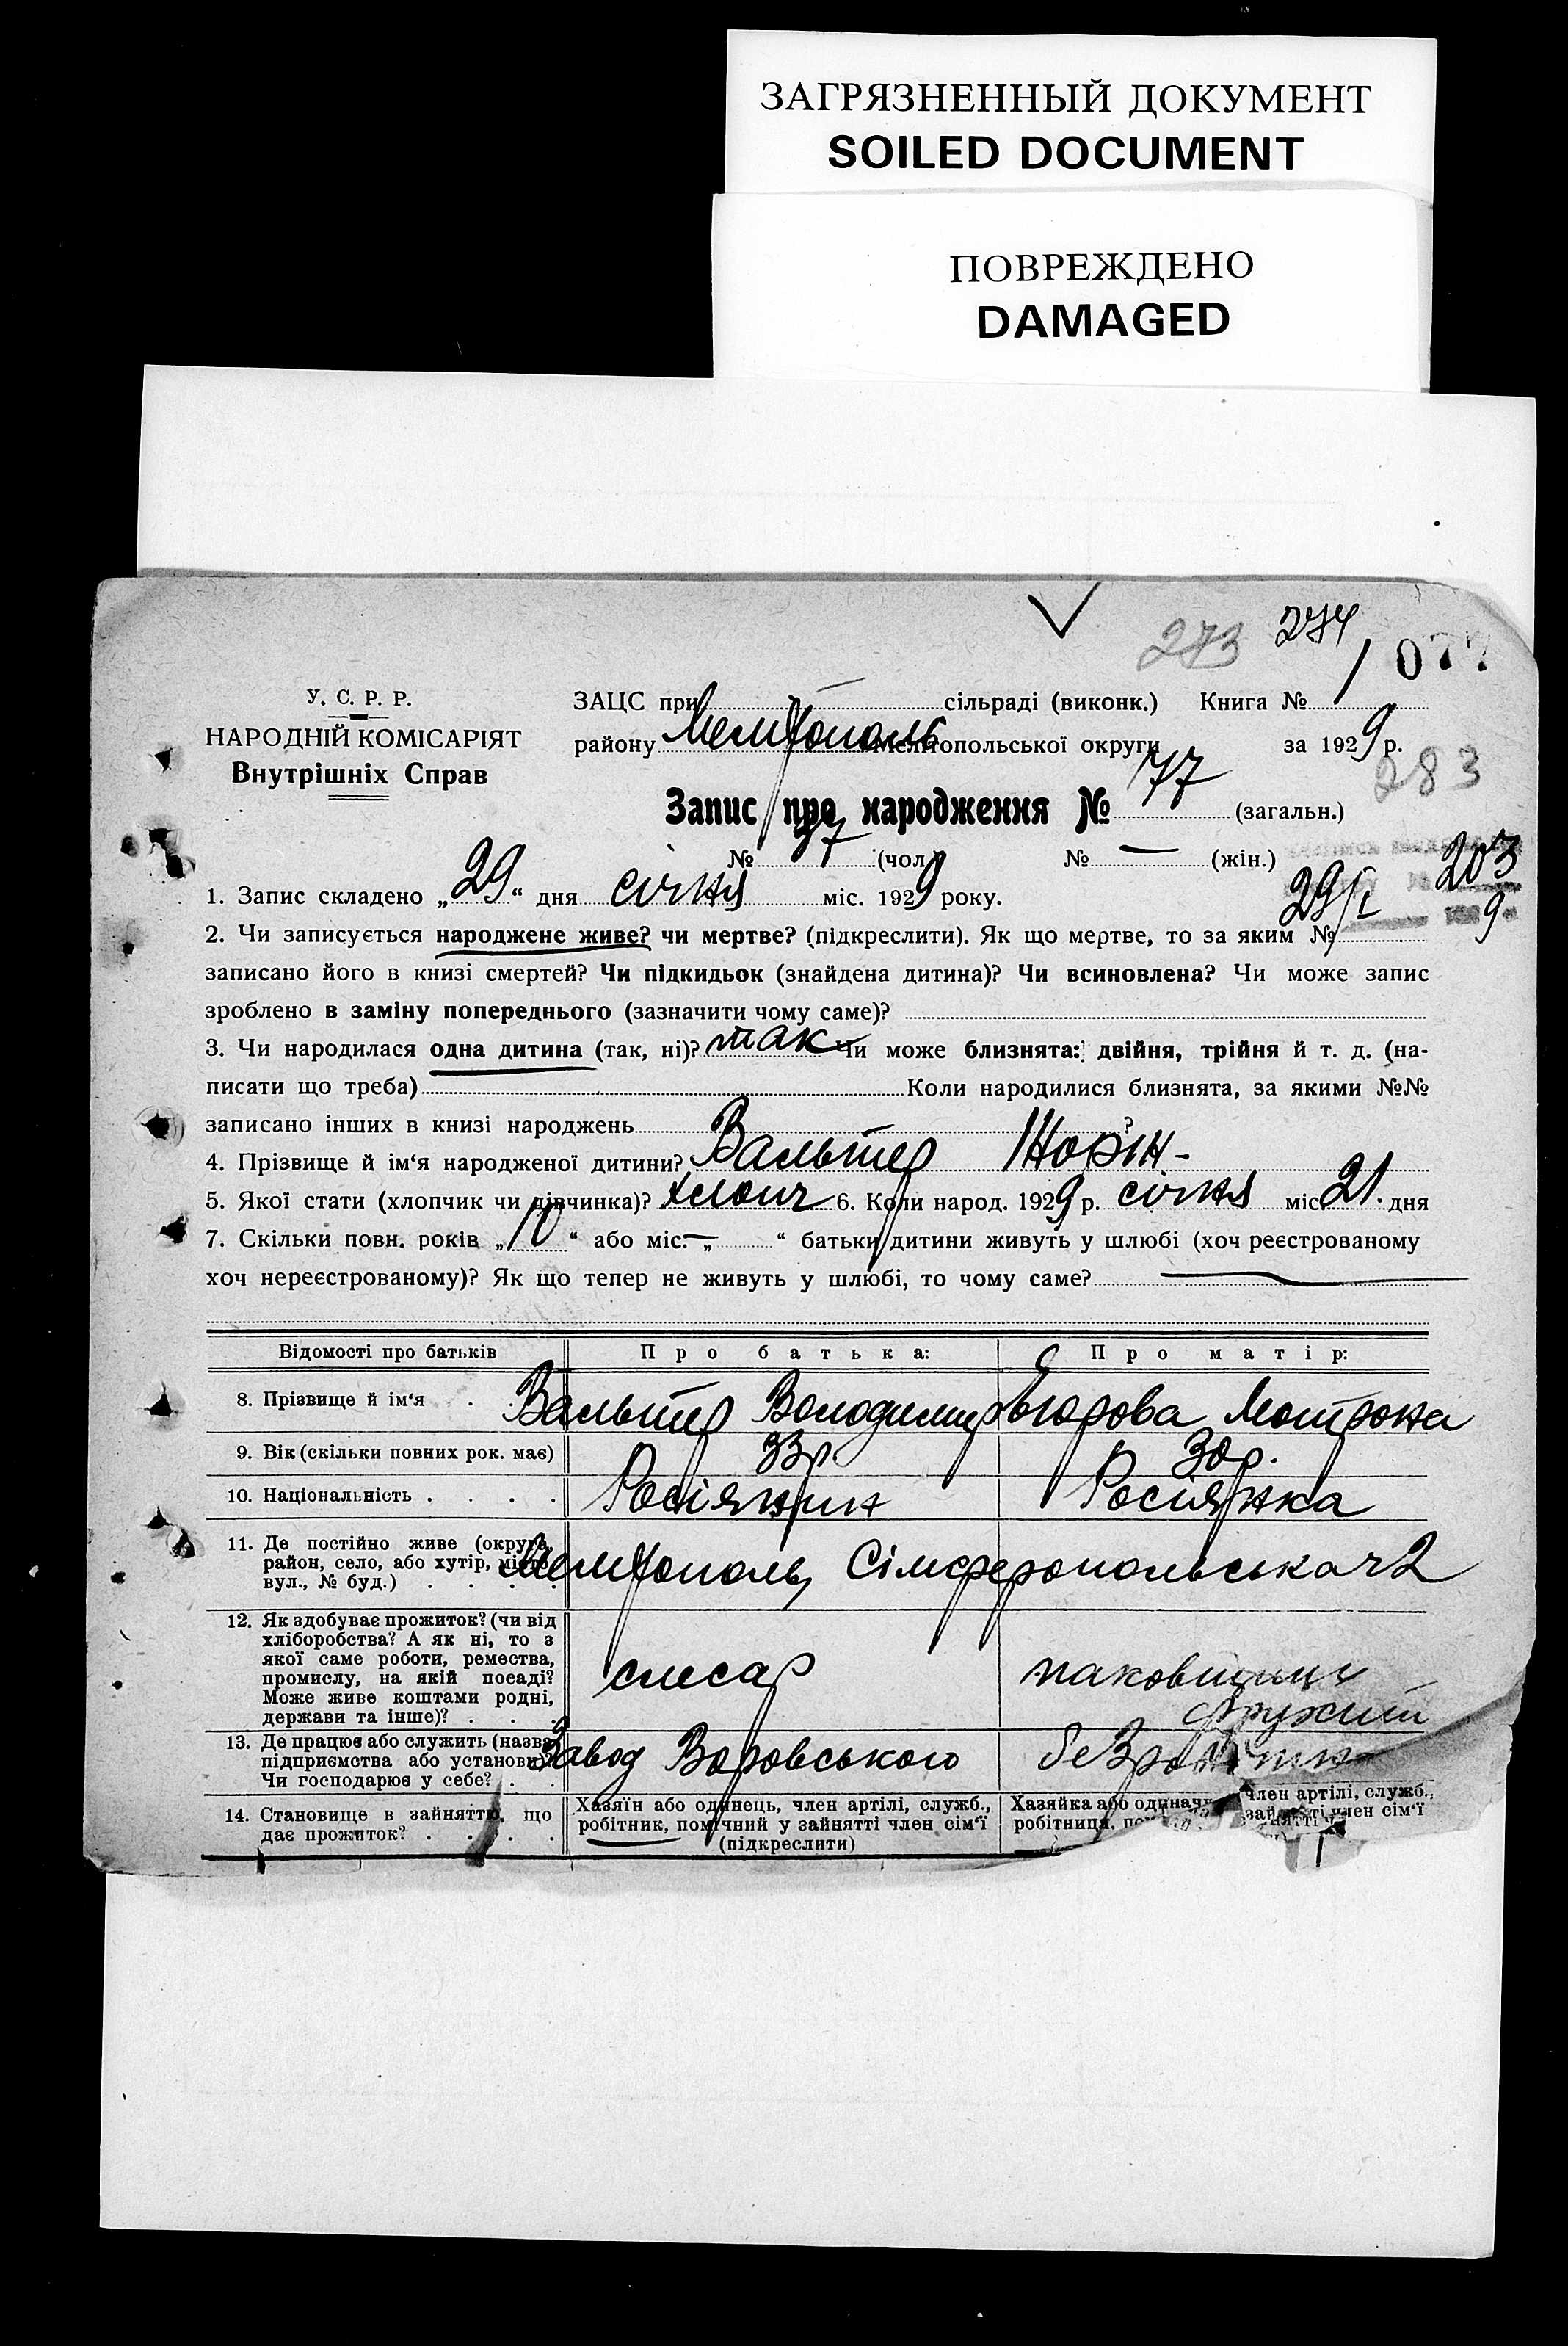 ЗАГРЯЗНЕННЫЙ ДОКУМЕНТ
SOILED DOCUMENT
ПОВРЕЖДЕНО
DAMAGED
273 274
077
У. С. Р. Р.
НАРОДНІЙ КОМІСАРІЯТ
Внутрішніх Справ
ЗАЦС при сільраді (виконк.) Книга № 1
району Мелітополь Мелітопольської округи за 1929 р.
283
Запис про народження № 77 (загальн.)
№ 37 (чол.) № — (жін.)
203
9
29/I
1. Запис складено „29“ дня січня міс. 1929 року.
2. Чи записується народжене живе? чи мертве? (підкреслити). Як що мертве, то за яким №
записано його в книзі смертей? Чи підкидьок (знайдена дитина)? Чи всиновлена? Чи може запис
зроблено в заміну попереднього (зазначити чому саме)?
3. Чи народилася одна дитина (так, ні)? так Чи може близнята: двійня, трійня й т. д. (на-
писати що треба) Коли народилися близнята, за якими №№
записано інших в книзі народжень ?
4. Прізвище й ім'я народженої дитини? Вальтер
5. Якої стати (хлопчик чи дівчинка)? хлопч 6. Коли народ. 1929 р. січня міс. 21. дня
7. Скільки повн. років „10“ або міс. „—“ батьки дитини живуть у шлюбі (хоч реєстрованому
хоч нереєстрованому)? Як що тепер не живуть у шлюбі, то чому саме? —
Відомості про батьків Про батька: Про матір:
8. Прізвище й ім'я . . Вальтер Володимир Єгорова Мотрона
9. Вік (скільки повних рок. має) 33р. 30р.
10. Національність . . . . Росіянин Росіянка
11. Де постійно живе (округа,
район, село, або хутір, місто
вул., № буд.) . . . . Мелітополь, Сімферопольська ч 2
12. Як здобуває прожиток? (чи від
хліборобства? А як ні, то з
якої саме роботи, ремества,
промислу, на якій посаді?
Може живе коштами родні,
держави та інше)? . . . слесар
13. Де працює або служить (назва
підприємства або установи)?
Чи господарює у себе? . . Завод Воровського
14. Становище в зайняттю, що
дає прожиток? . . . .
Хазяїн або одинець, член артілі, служб.,
робітник, помічний у зайнятті член сім'ї
(підкреслити)
Хазяйка або одиначка член артілі, служб.,
робітниця, член сім'ї